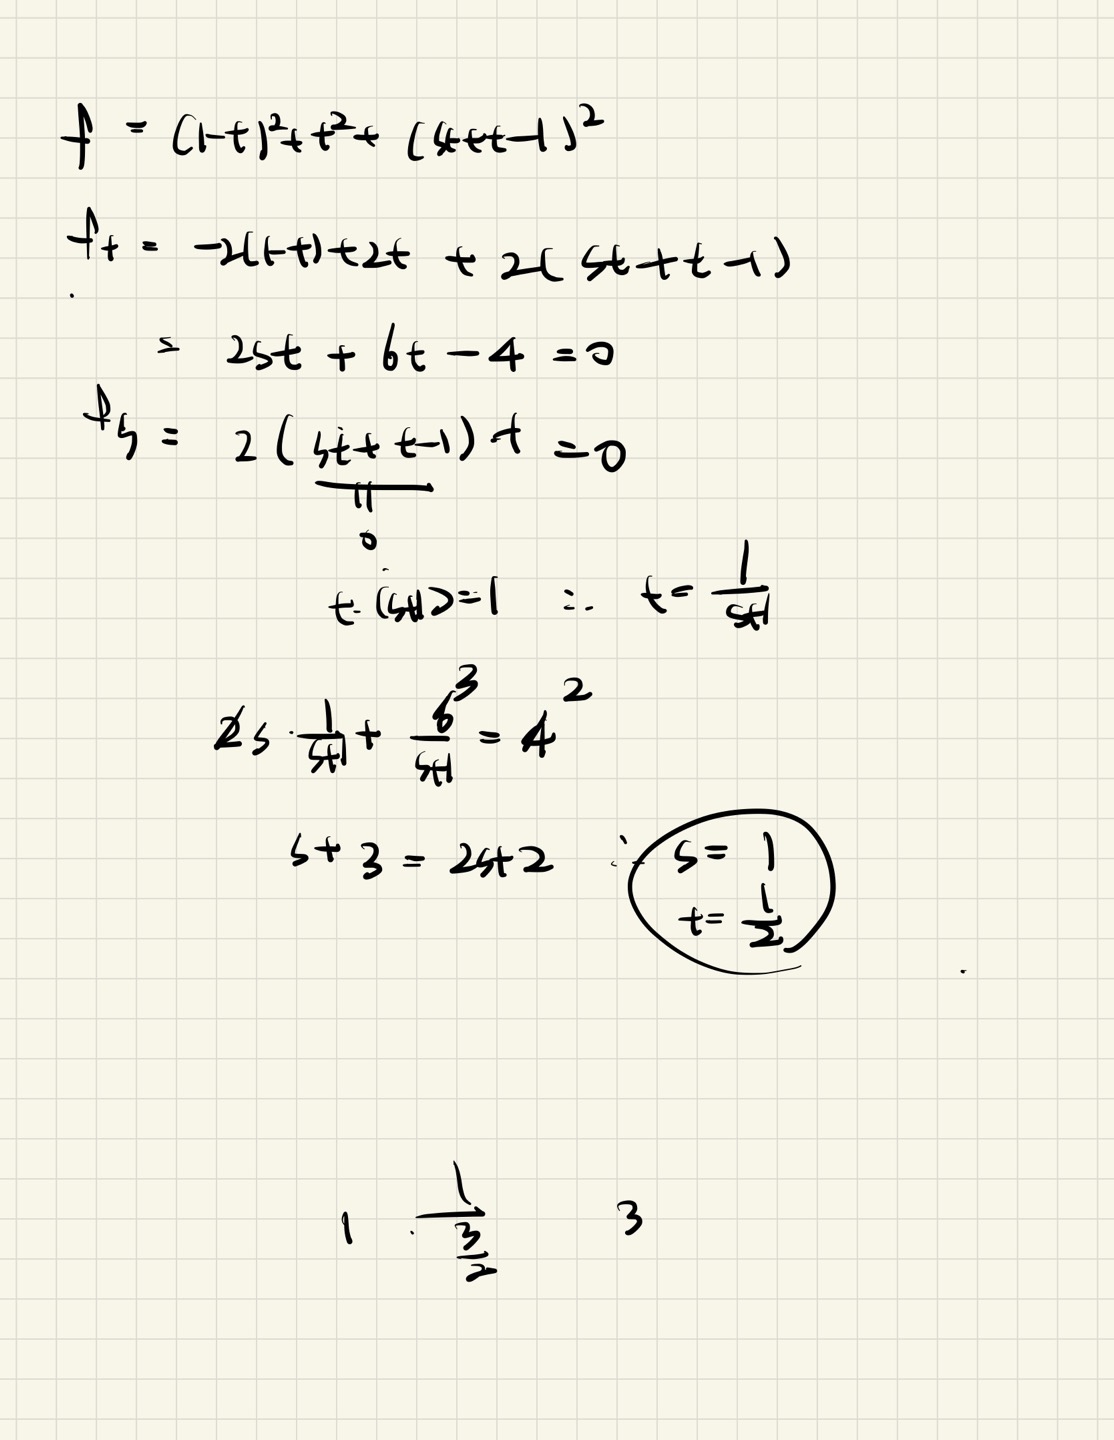 f = (1-t)²+ t²+ (st+t-1)²
f_t = -2(1-t)+2t + 2( st+t-1)
= 2st + 6t - 4 = 0
f_s = 2 ( st+ t-1) t = 0
11
0
t·(s+1)=1 ∴ t= 1/(s+1)
2s · 1/(s+1) + 6/(s+1) = 4
3 2
s+3 = 2s+2 ∴ s= 1
t= 1/2
1 · 1/(3/2) 3